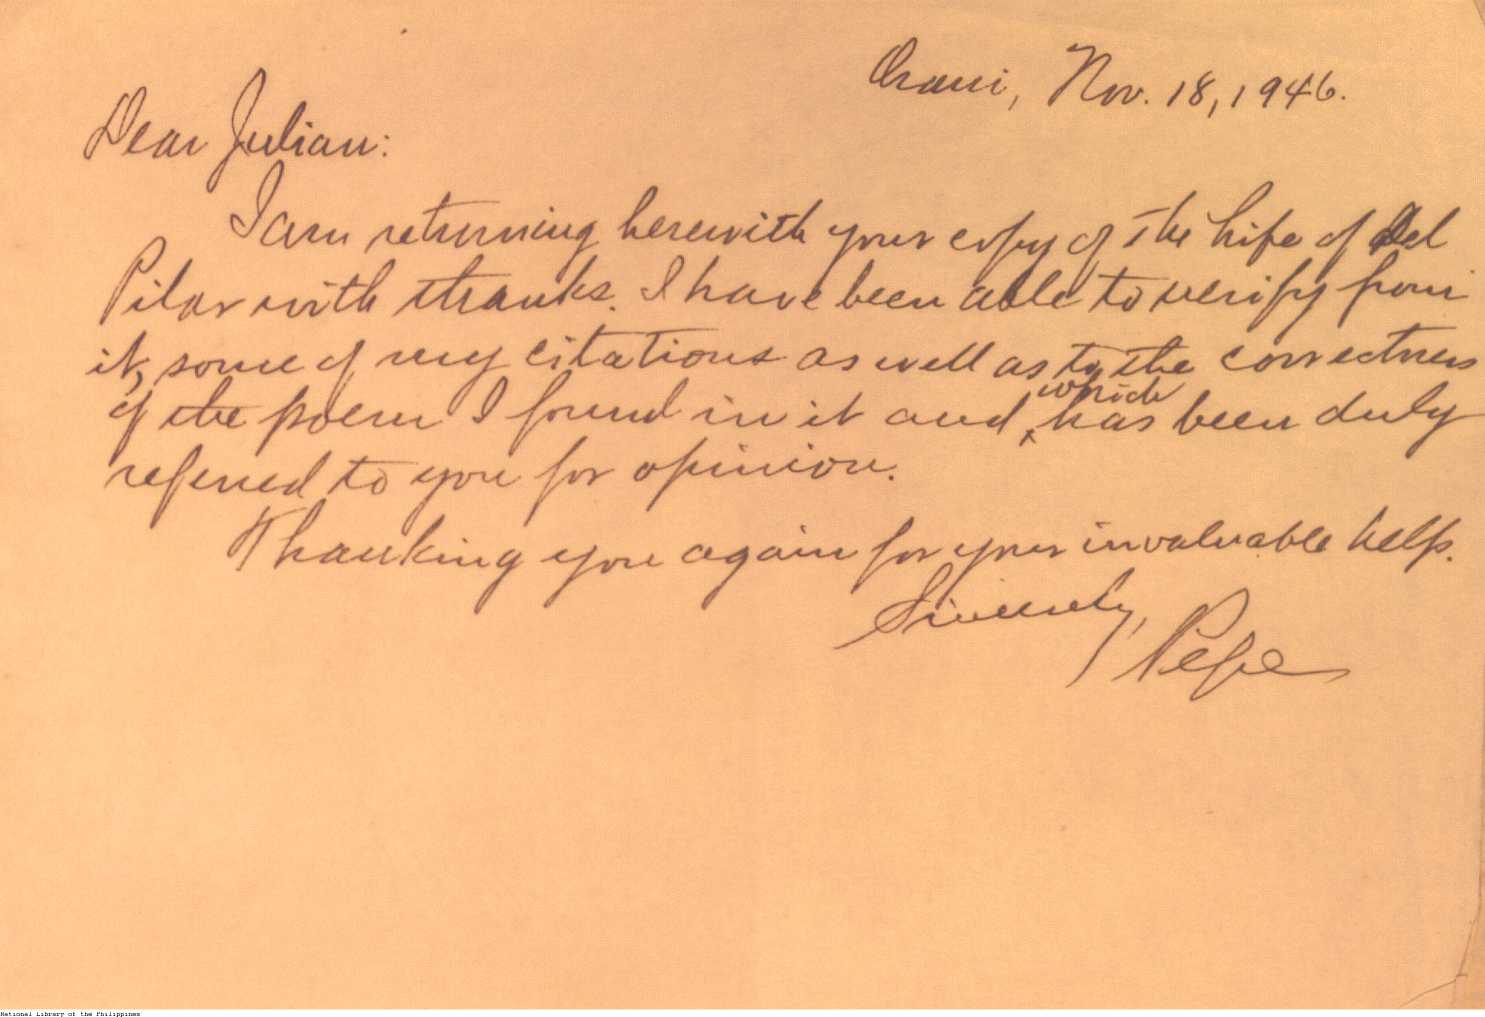 Orani, Nov. 18, 1946.
Dear Julian:
I am returning herewith your copy of the Life of Del
Pilar with thanks. I have been able to verify from
it, some of my citations as well as to the correctness
of the poem I found in it and which has been duly
referred to you for opinion.
Thanking you again for your invaluable help.
Sincerely,
Pepe
National Library of the Philippines